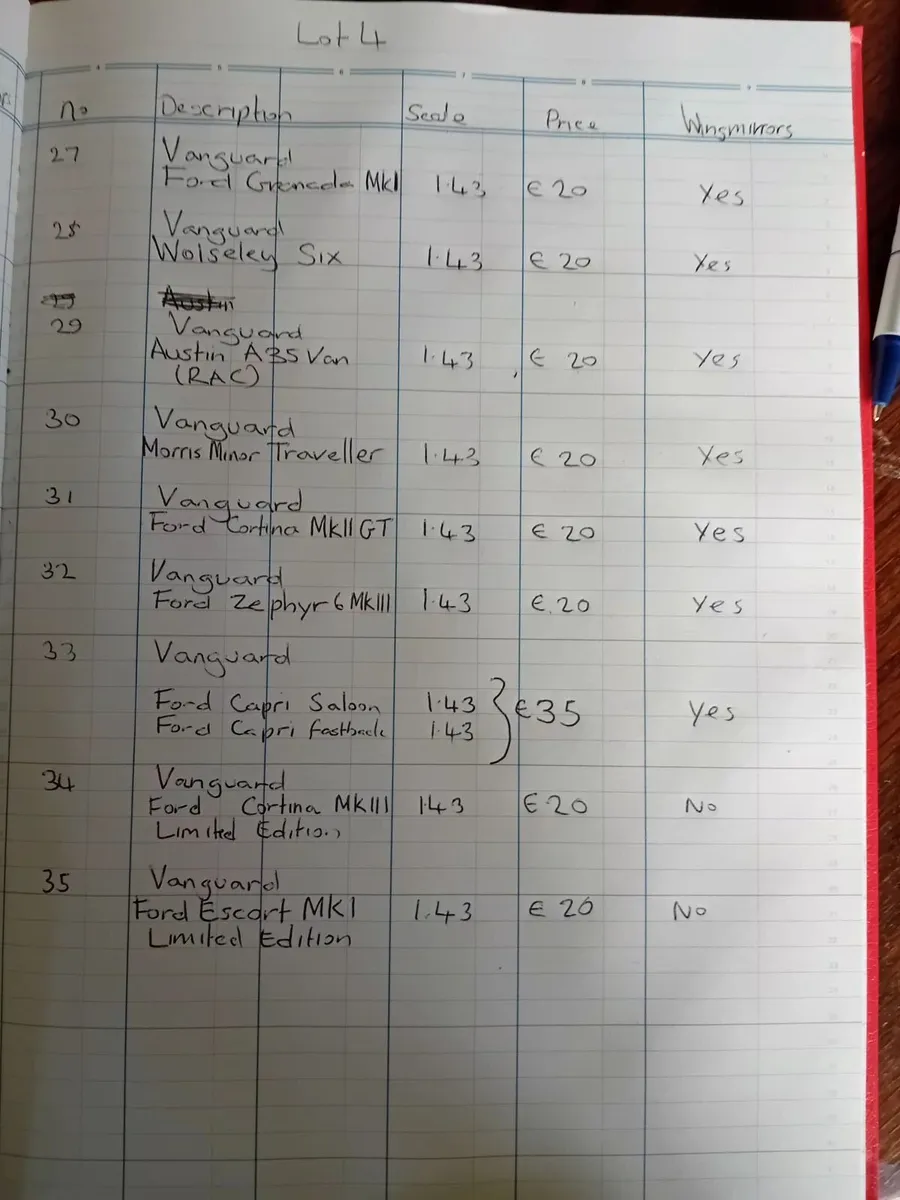 Lot 4
no Description Scale Price Wingmirrors
27 Vanguard
Ford Grenada MkI 1.43 € 20 Yes
28 Vanguard
Wolseley Six 1.43 € 20 Yes
Austin
29 Vanguard
Austin A35 Van 1.43 € 20 Yes
(RAC)
30 Vanguard
Morris Minor Traveller 1.43 € 20 Yes
31 Vanguard
Ford Cortina MkII GT 1.43 € 20 Yes
32 Vanguard
Ford Zephyr 6 MkIII 1.43 € 20 Yes
33 Vanguard
Ford Capri Saloon 1.43 € 35 Yes
Ford Capri fastback 1.43
34 Vanguard
Ford Cortina MKIII 1.43 € 20 No
Limited Edition
35 Vanguard
Ford Escort MKI 1.43 € 20 No
Limited Edition